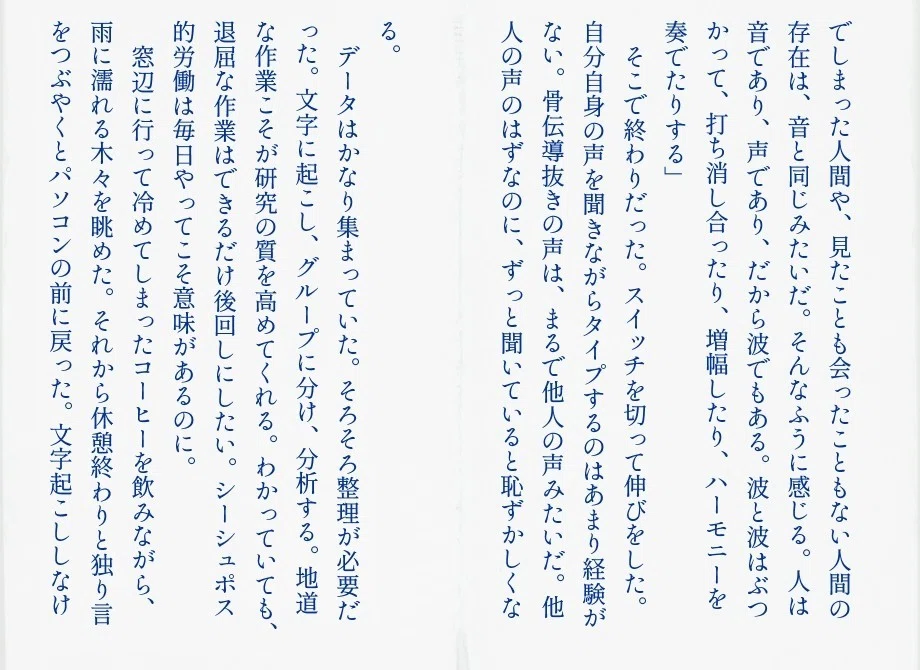 でしまった人間や、見たことも会ったこともない人間の
存在は、音と同じみたいだ。そんなふうに感じる。人は
音であり、声であり、だから波でもある。波と波はぶつ
かって、打ち消し合ったり、増幅したり、ハーモニーを
奏でたりする」
　そこで終わりだった。スイッチを切って伸びをした。
自分自身の声を聞きながらタイプするのはあまり経験が
ない。骨伝導抜きの声は、まるで他人の声みたいだ。他
人の声のはずなのに、ずっと聞いていると恥ずかしくな
る。
　データはかなり集まっていた。そろそろ整理が必要だ
った。文字に起こし、グループに分け、分析する。地道
な作業こそが研究の質を高めてくれる。わかっていても、
退屈な作業はできるだけ後回しにしたい。シーシュポス
的労働は毎日やってこそ意味があるのに。
　窓辺に行って冷めてしまったコーヒーを飲みながら、
雨に濡れる木々を眺めた。それから休憩終わりと独り言
をつぶやくとパソコンの前に戻った。文字起こししなけ